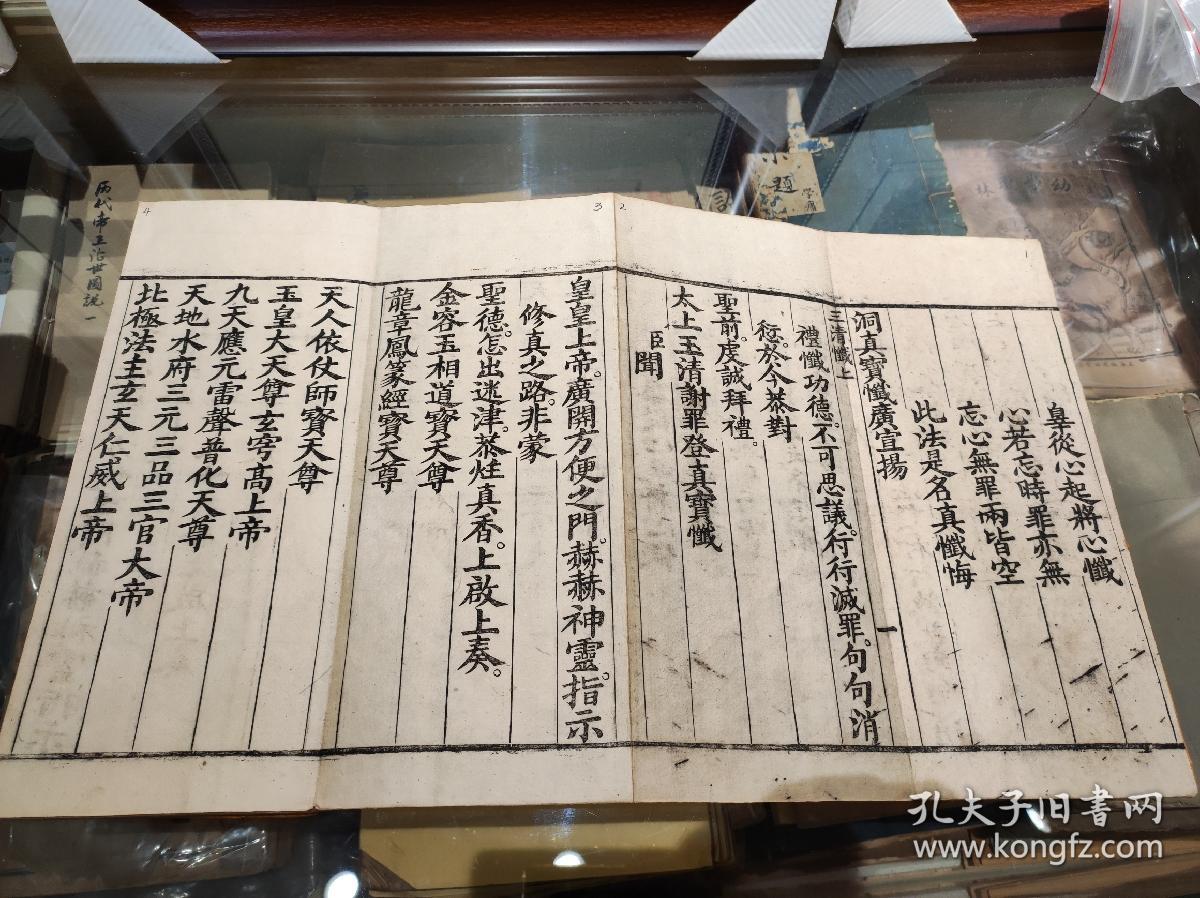 1
辠從心起將心懺
心若忘時罪亦無
忘心無罪兩皆空
此法是名真懺悔
洞真寶懺廣宣揚
一
三清懺上
禮懺功德。不可思議。行行滅罪。句句消
愆。於今恭對
聖前。虔誠拜禮。
太上玉清謝罪登真寶懺
臣聞
2
3
皇皇上帝。廣開方便之門。赫赫神靈。指示
修真之路。非蒙
聖德。怎出迷津。恭炷真香。上啟上奏。
金容玉相道寶天尊
龍章鳳篆經寶天尊
天人依仗師寶天尊
玉皇大天尊玄穹高上帝
九天應元雷聲普化天尊
天地水府三元三品三官大帝
北極法主玄天仁威上帝
4
历代帝王治世圖説 一
題
孔夫子旧书网
www.kongfz.com